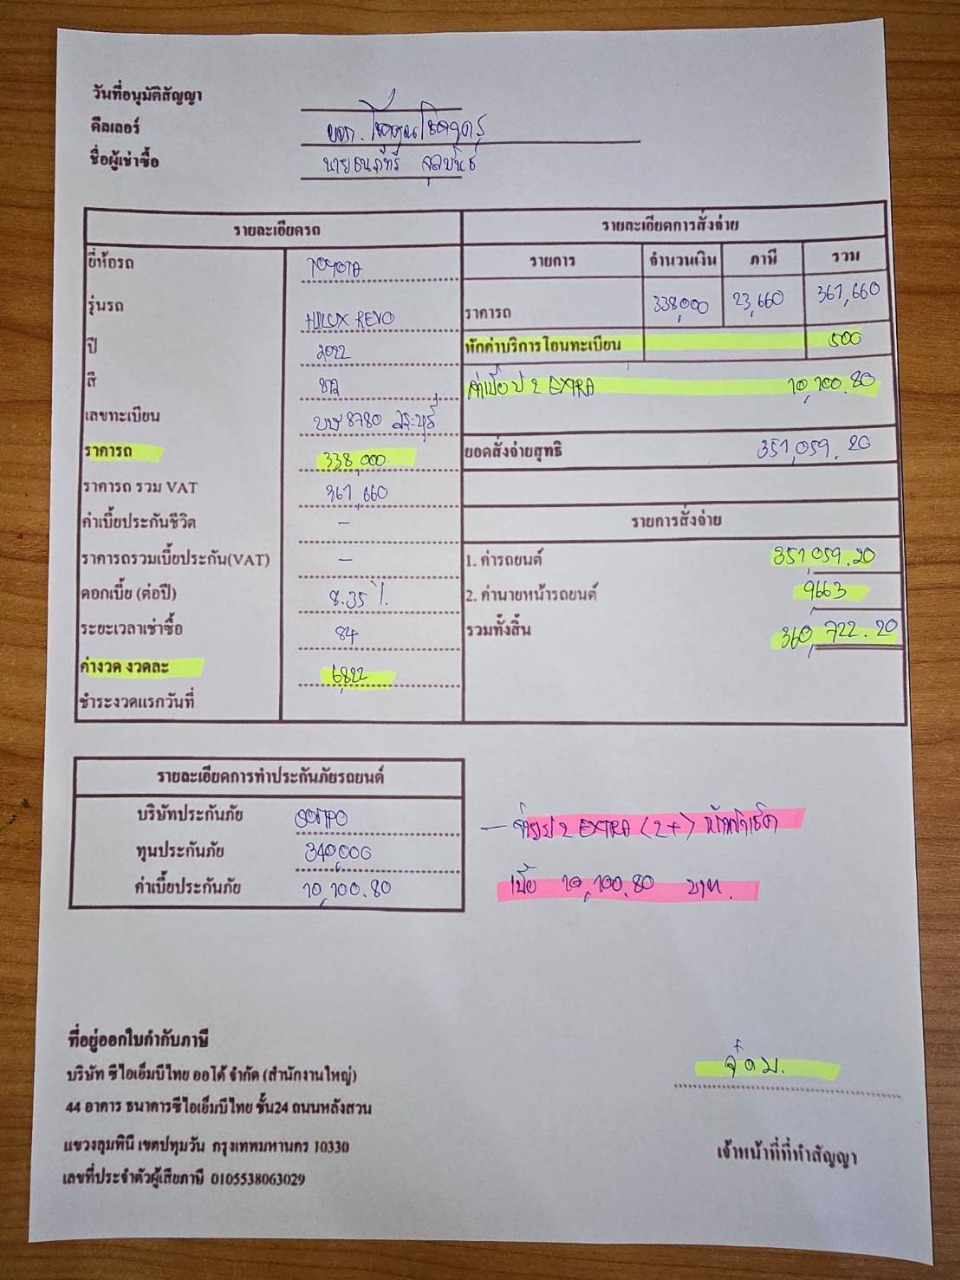 วันที่อนุมัติสัญญา
ดีลเลอร์ บจก.
ชื่อผู้เช่าซื้อ
รายละเอียดรถ
ยี่ห้อรถ TOYOTA
รุ่นรถ HILUX REVO
ปี 2022
สี ขาว
เลขทะเบียน 8780 สระบุรี
ราคารถ 338,000
ราคารถ รวม VAT 361,660
ค่าเบี้ยประกันชีวิต -
ราคารถรวมเบี้ยประกัน(VAT) -
ดอกเบี้ย (ต่อปี) 8.35 %
ระยะเวลาเช่าซื้อ 84
ค่างวด งวดละ 6,822
ชำระงวดแรกวันที่
รายละเอียดการสั่งจ่าย
รายการ จำนวนเงิน ภาษี รวม
ราคารถ 338,000 23,660 361,660
หักค่าบริการโอนทะเบียน 500
ค่าเบี้ย ป 2 EXTRA 10,100.80
ยอดสั่งจ่ายสุทธิ 351,059.20
รายการสั่งจ่าย
1. ค่ารถยนต์ 351,059.20
2. ค่านายหน้ารถยนต์ 9,663
รวมทั้งสิ้น 360,722.20
รายละเอียดการทำประกันภัยรถยนต์
บริษัทประกันภัย SOMPO
ทุนประกันภัย 340,000
ค่าเบี้ยประกันภัย 10,100.80
ป 2 EXTRA (2+)
เบี้ย 10,100.80 บาท.
ที่อยู่ออกใบกำกับภาษี
บริษัท ซีไอเอ็มบีไทย ออโต้ จำกัด (สำนักงานใหญ่)
44 อาคาร ธนาคารซีไอเอ็มบีไทย ชั้น24 ถนนหลังสวน
แขวงลุมพินี เขตปทุมวัน กรุงเทพมหานคร 10330
เลขที่ประจำตัวผู้เสียภาษี 0105538063029
เจ้าหน้าที่ที่ทำสัญญา